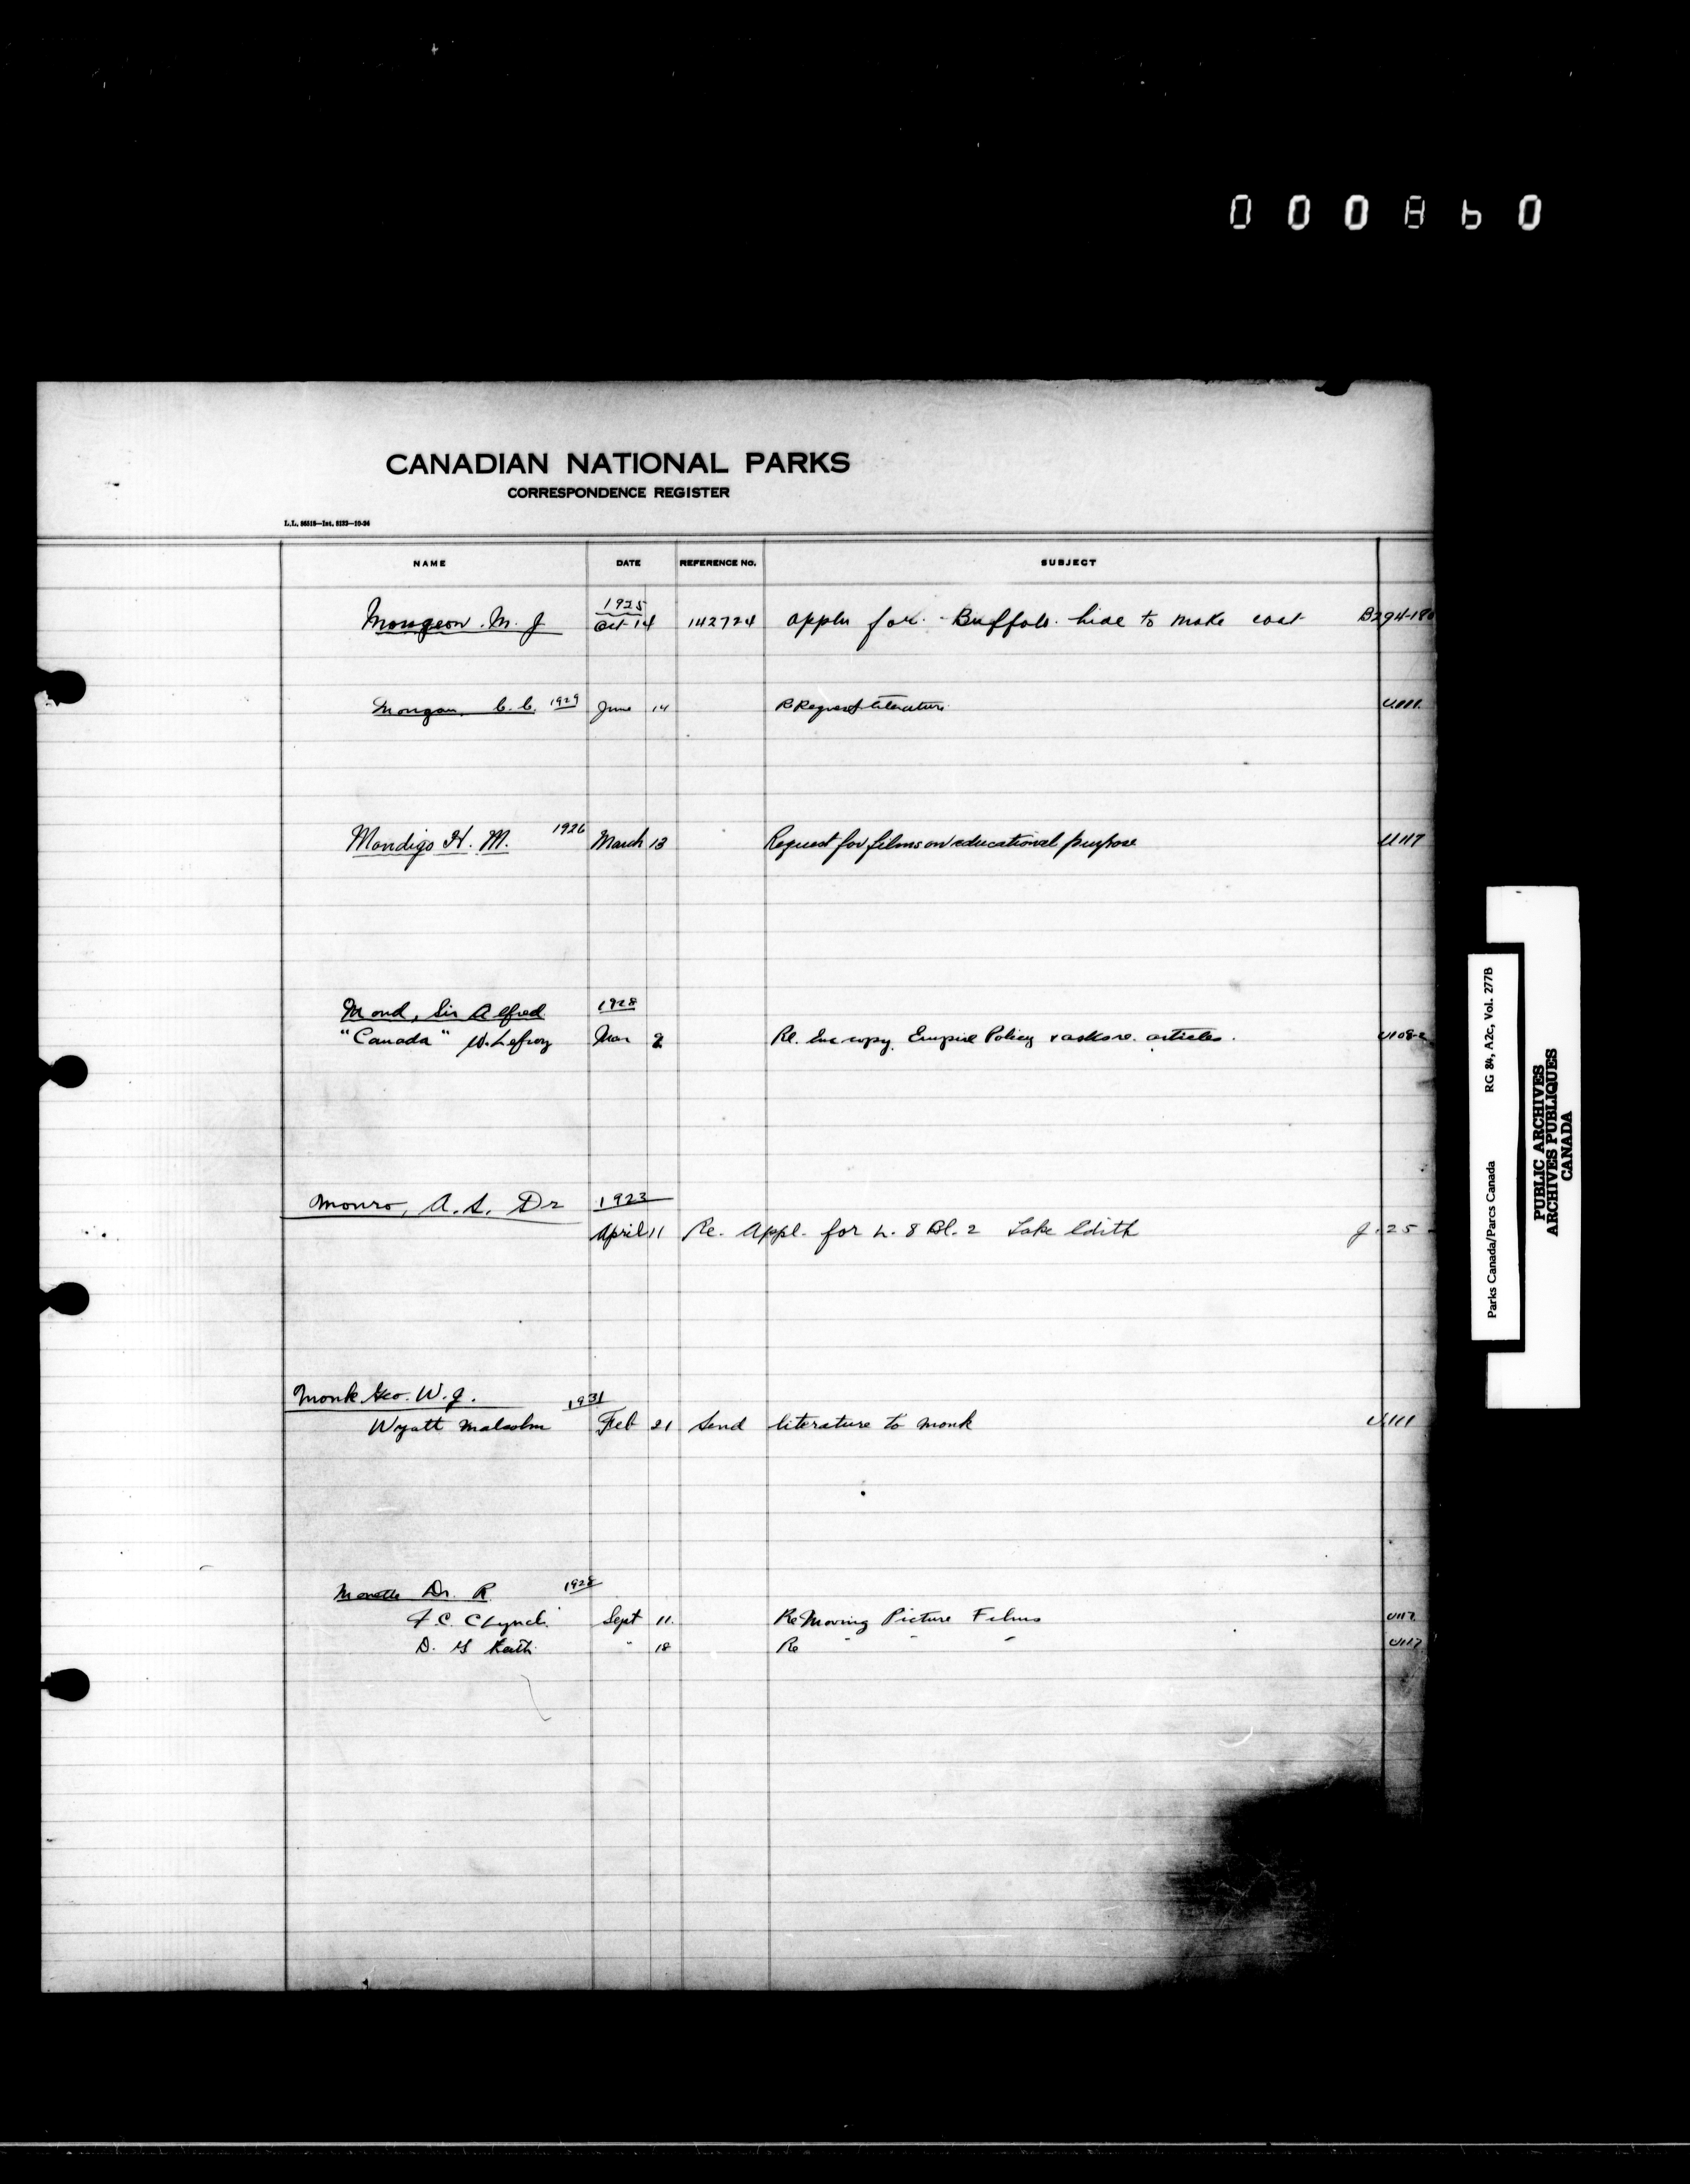 CANADIAN NATIONAL PARKS
CORRESPONDENCE REGISTER
NAME DATE REFERENCE No. SUBJECT
1925
Mongeon. M. J Oct 14 142724 Appln for Buffalo hide to make coat B294-180
Mongan, C. C. 1929 June 14 Request literature U.111.
Mondigo H. M. 1926 March 13 Request for films on educational purpose U117
Mond, Sir Alfred 1928
"Canada" W. Lefroy Mar 2 Re. Enc copy. Empire Policy & asks re. articles. U108-2
Monro, A. S. Dr 1923
April 11 Re. Appl. for L. 8 Bl. 2 Lake Edith J.25
Monk Geo. W. J. 1931
Wyatt Malcolm Feb 21 Send literature to Monk U.111
Monette Dr. R 1928
F. C. C Lynch Sept 11. Re Moving Picture Films U117
D. Keith " 18 Re " " " U117
Parks Canada/Parcs Canada RG 84, A2c, Vol. 277B
PUBLIC ARCHIVES
ARCHIVES PUBLIQUES
CANADA